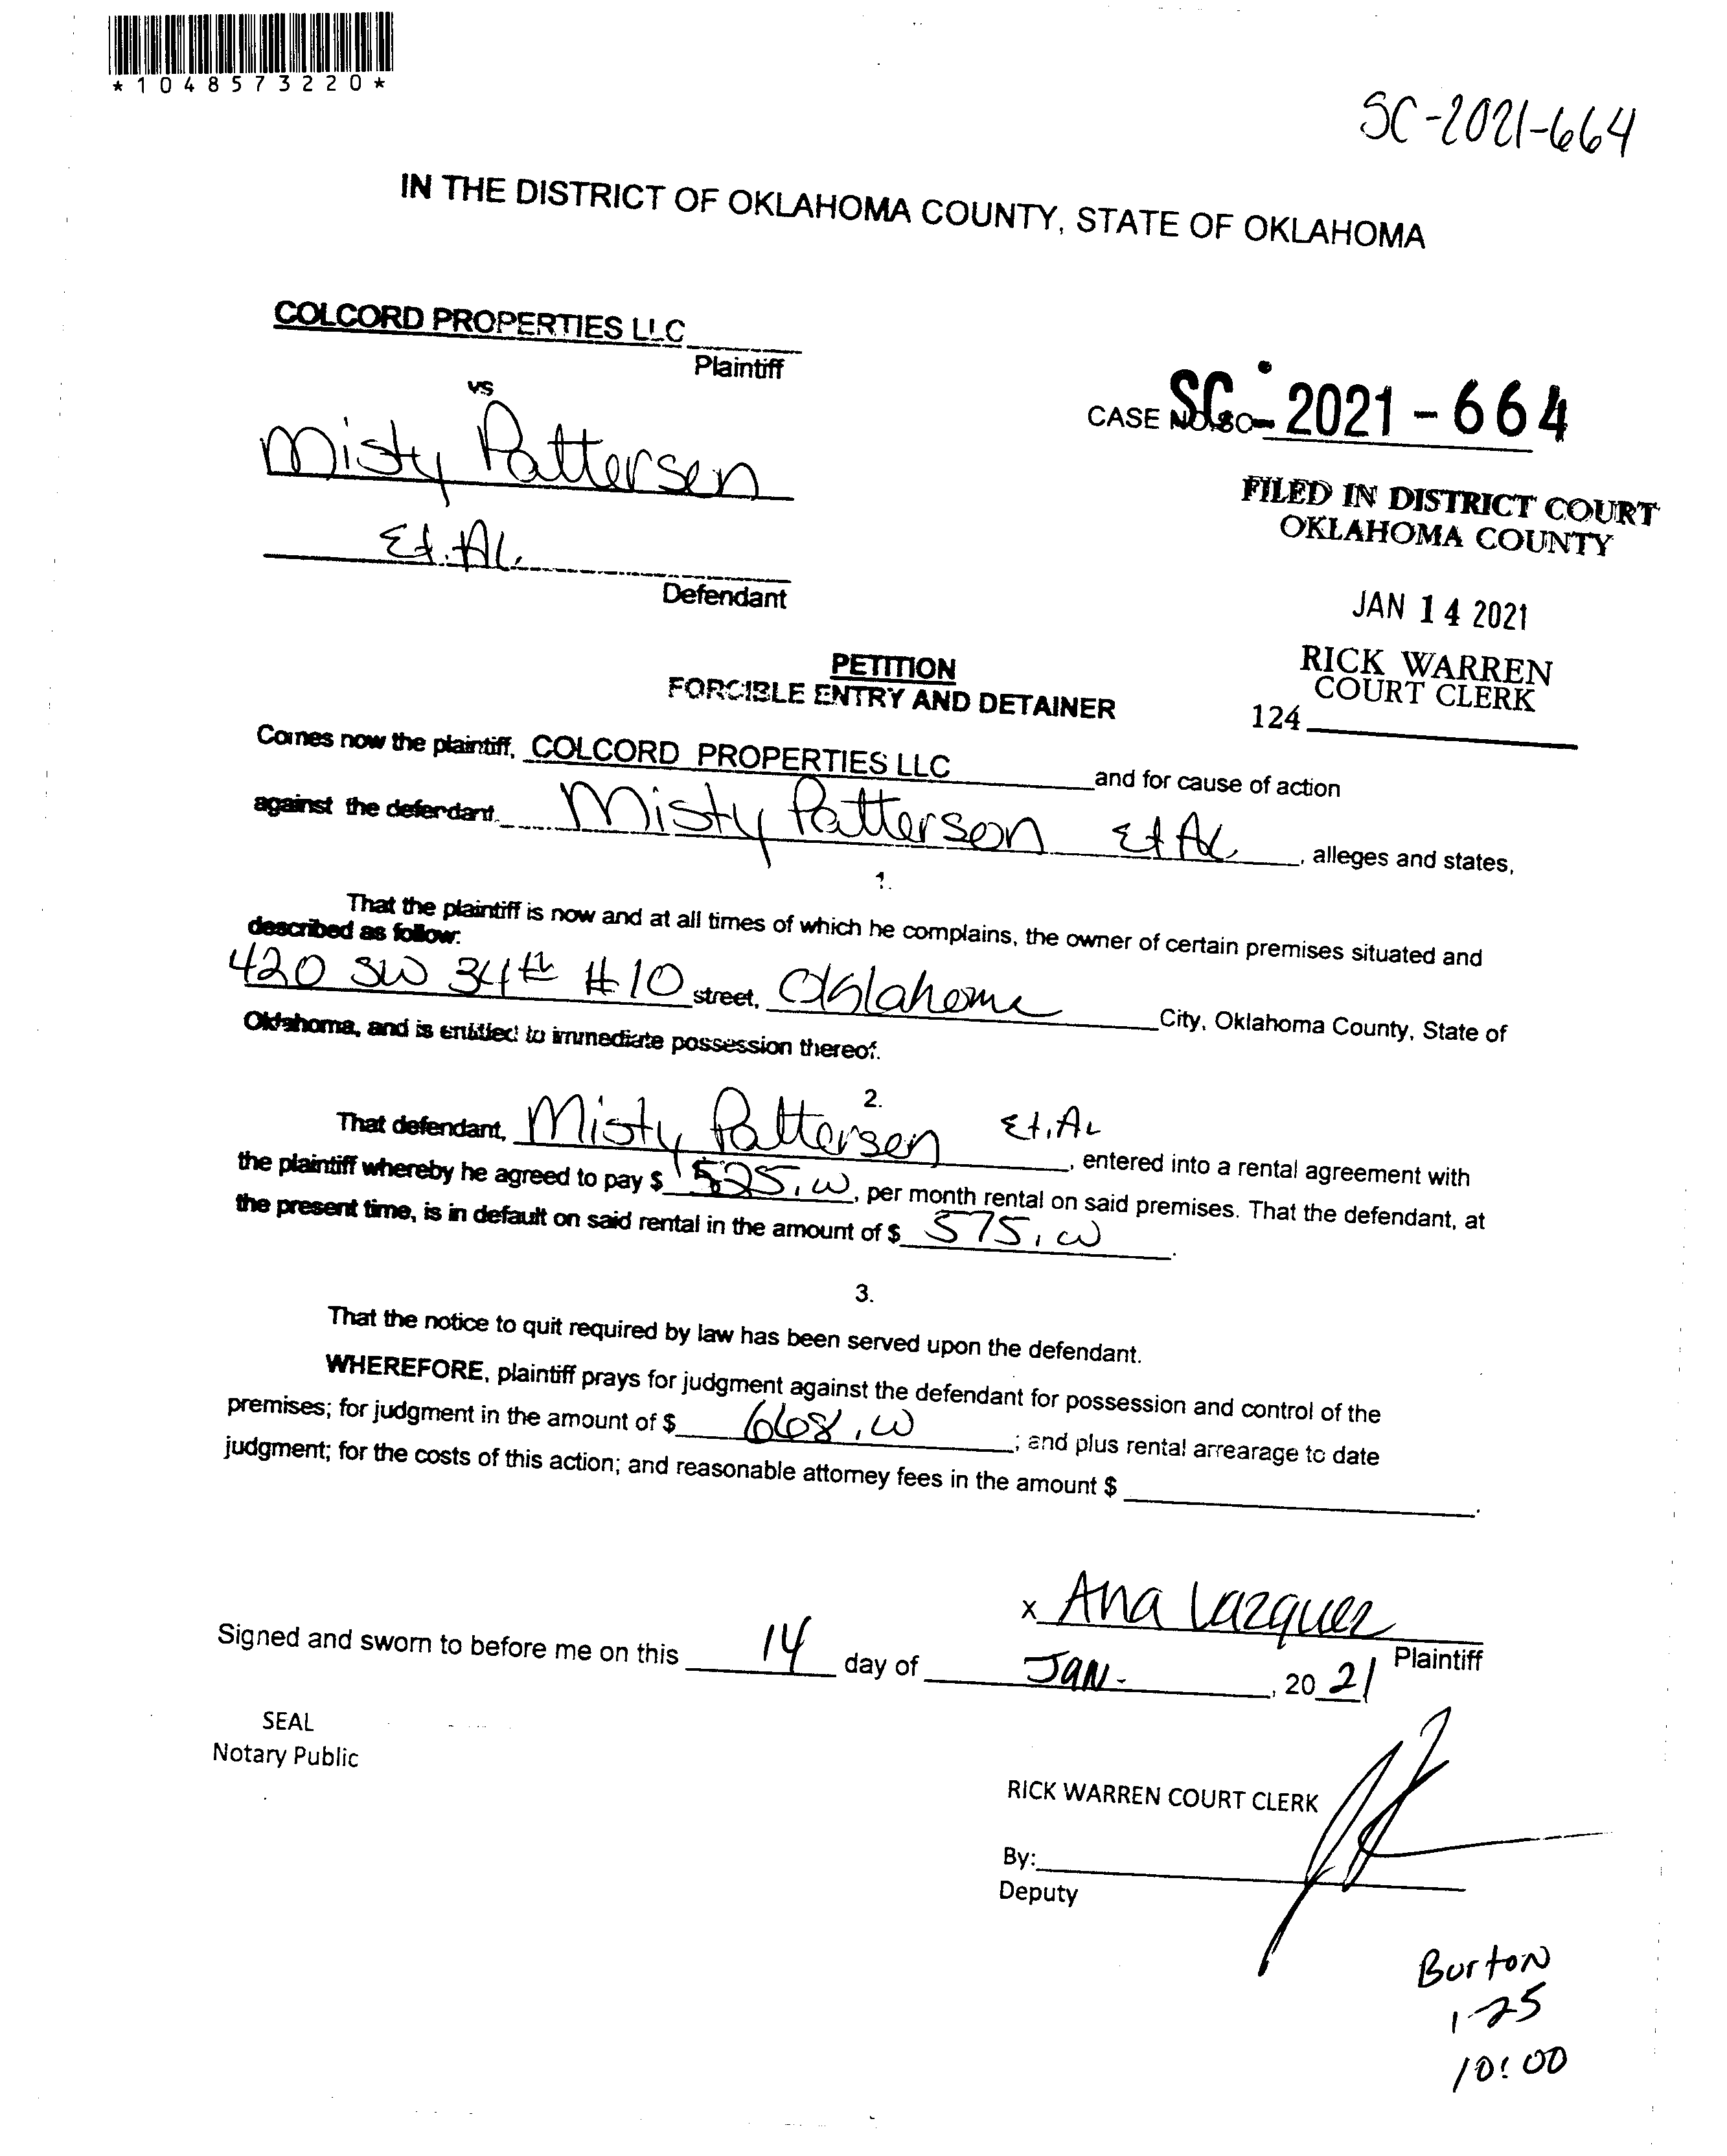 *1048573220*
SC-2021-664
IN THE DISTRICT OF OKLAHOMA COUNTY, STATE OF OKLAHOMA
COLCORD PROPERTIES LLC
Plaintiff
vs
Misty Pattersen
Et. Al.
Defendant
CASE NO. SC- SC-2021-664
FILED IN DISTRICT COURT
OKLAHOMA COUNTY
JAN 14 2021
RICK WARREN
COURT CLERK
124
PETITION
FORCIBLE ENTRY AND DETAINER
Comes now the plaintiff, COLCORD PROPERTIES LLC and for cause of action
against the defendant. Misty Patterson Et Al, alleges and states,
1.
That the plaintiff is now and at all times of which he complains, the owner of certain premises situated and
described as follow:
420 SW 34th #10 street, Oklahoma City, Oklahoma County, State of
Oklahoma, and is entitled to immediate possession thereof.
2.
That defendant, Misty Pattersen Et. Al, entered into a rental agreement with
the plaintiff whereby he agreed to pay $ 525.00, per month rental on said premises. That the defendant, at
the present time, is in default on said rental in the amount of $ 575.00.
3.
That the notice to quit required by law has been served upon the defendant.
WHEREFORE, plaintiff prays for judgment against the defendant for possession and control of the
premises; for judgment in the amount of $ 668.00; and plus rental arrearage to date
judgment; for the costs of this action; and reasonable attorney fees in the amount $
x Ana Vazquez
Plaintiff
Signed and sworn to before me on this 14 day of Jan., 2021
SEAL
Notary Public
RICK WARREN COURT CLERK
By:
Deputy
Burton
1-25
10:00